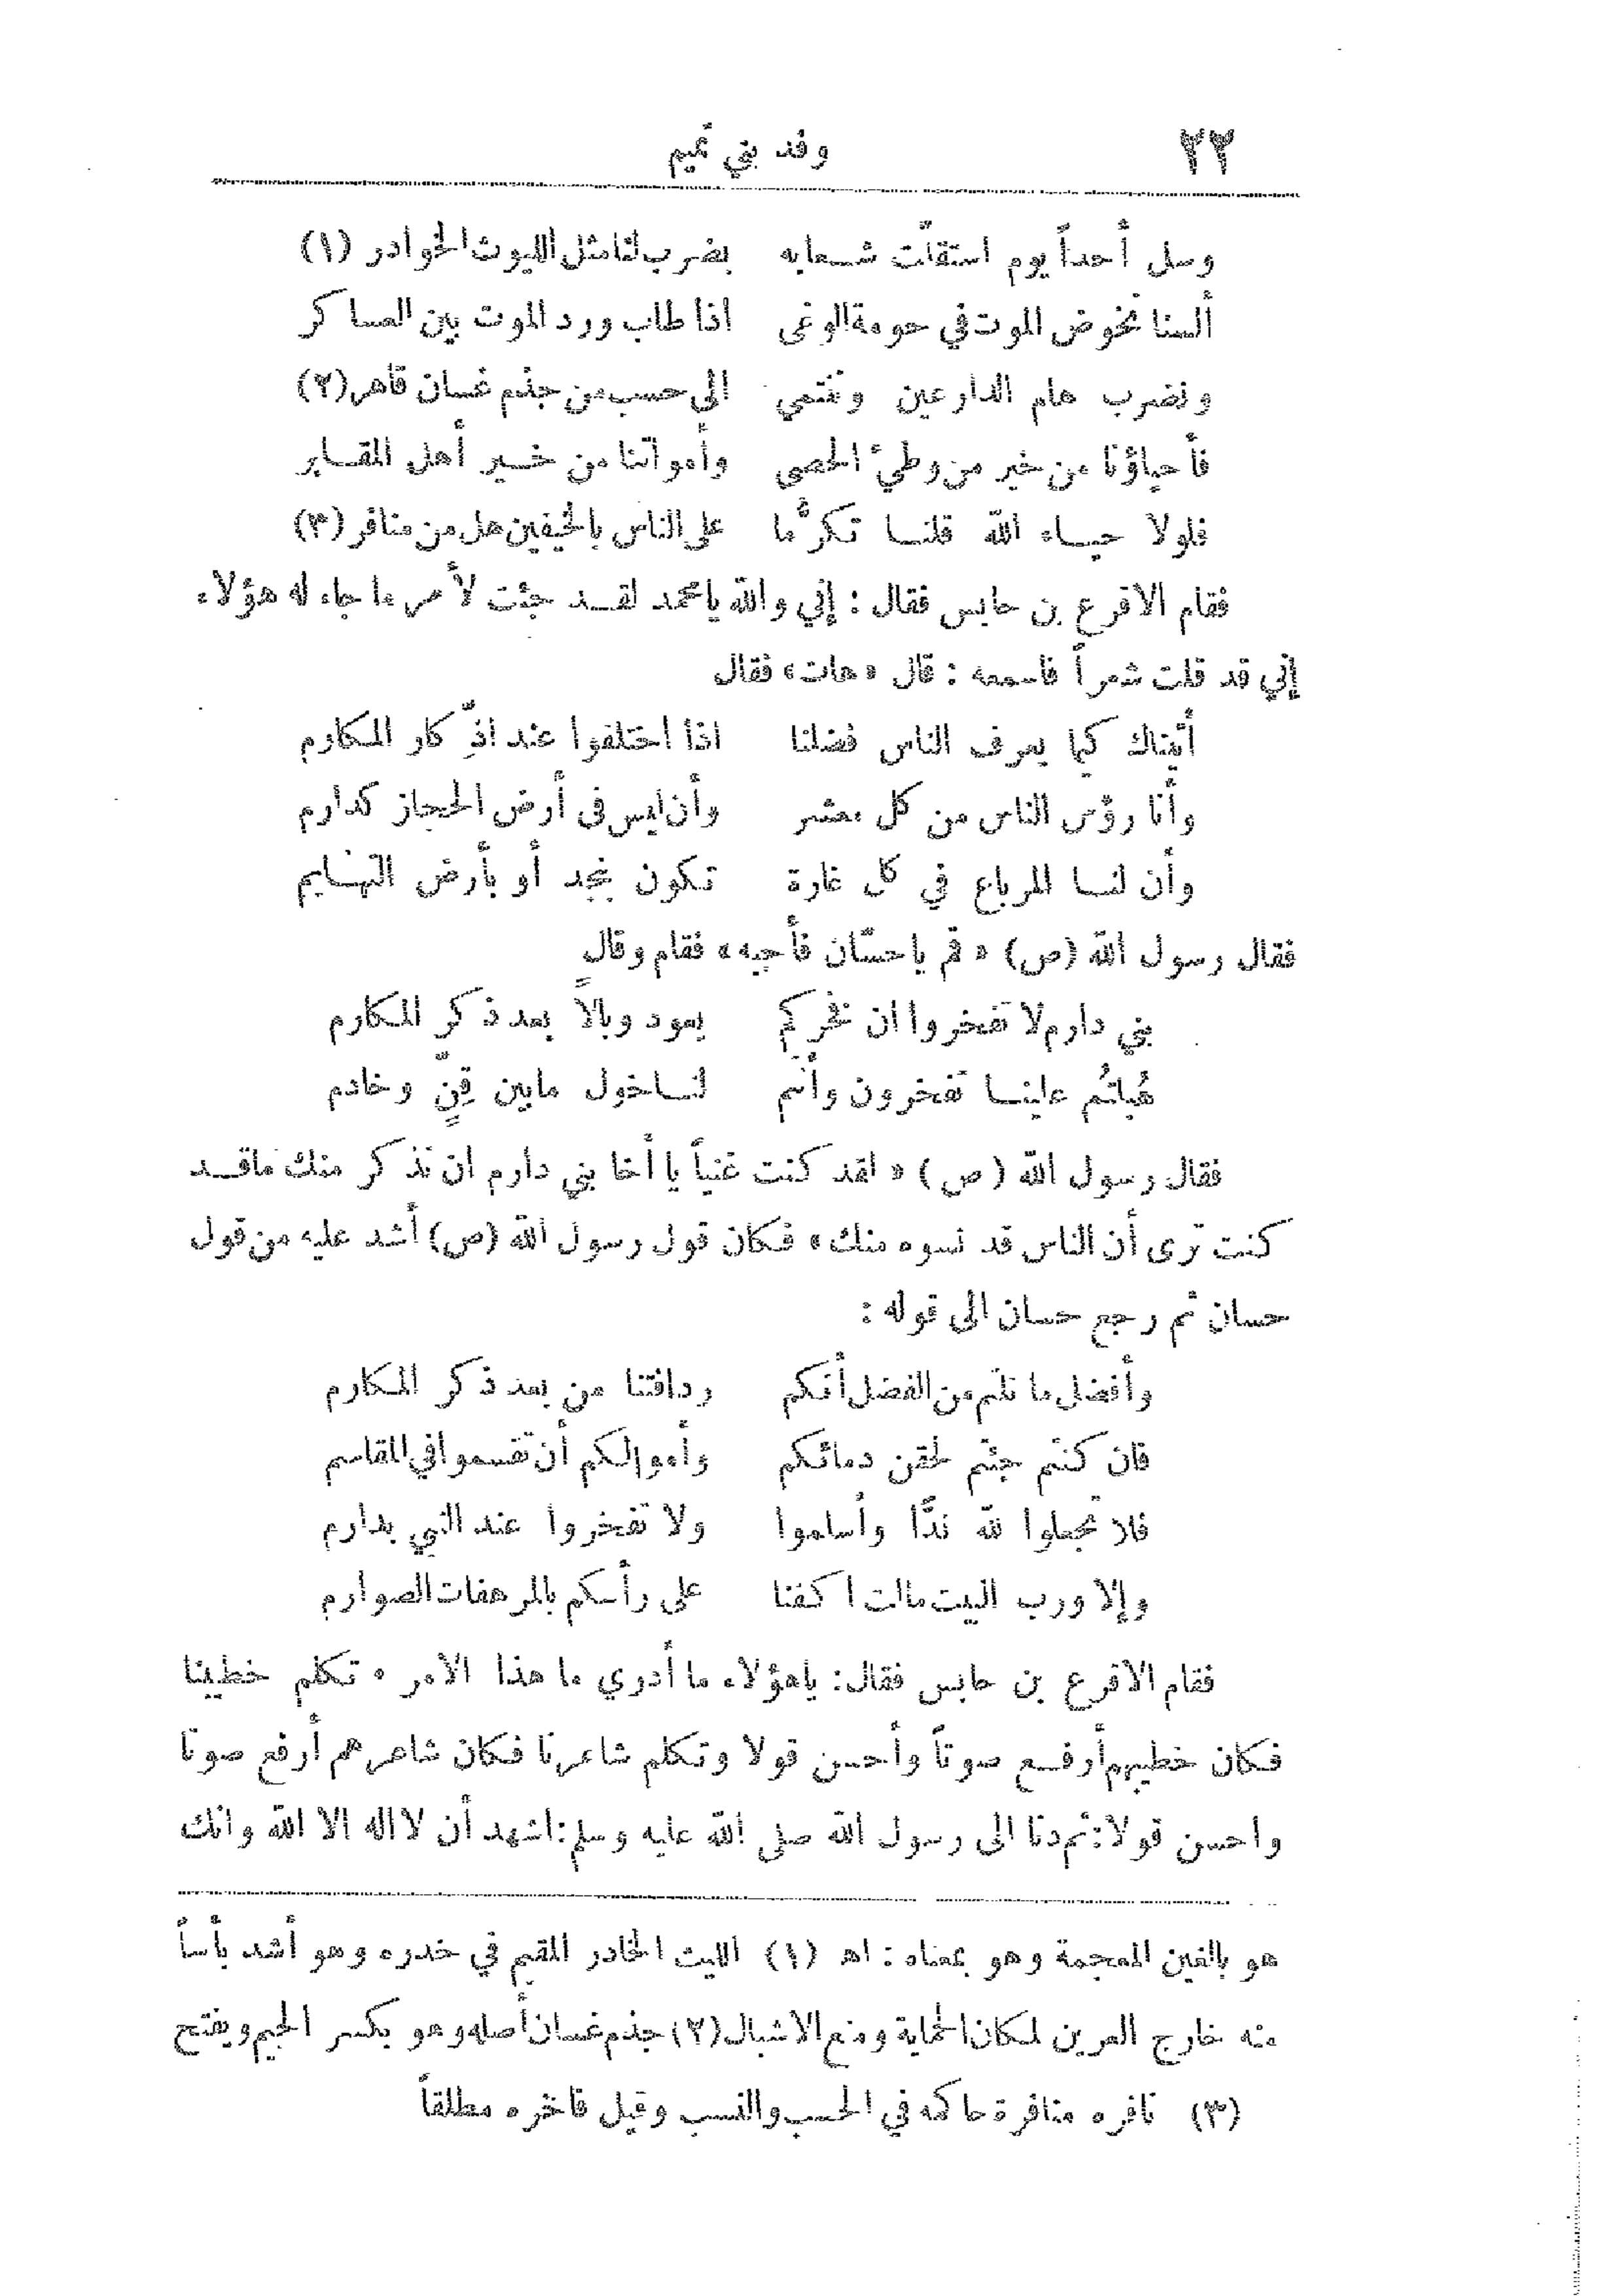 ٢٢ وفد بني تميم
وسل أحداً يوم استقلّت شعابه بضرب لنا مثل الليوث الخوادر (١)
ألسنا نخوض الموت في حومة الوغى اذا طاب ورد الموت بين العساكر
ونضرب هام الدارعين وننتمي الى حسب من جذم غسان قاهر (٢)
فأحياؤنا من خير من وطئ الحصى وأمواتنا من خير أهل المقابر
فلولا حياء الله قلنا تكرُّما على الناس بالخيفين هل من منافر (٣)
فقام الاقرع بن حابس فقال : إني والله يامحمد لقد جئت لأمر ما جاء له هؤلاء
إني قد قلت شعراً فاسمعه : قال « هات » فقال
أتيناك كيما يعرف الناس فضلنا اذا اختلفوا عند اذِّكار المكارم
وأنا رؤس الناس من كل معشر وأن ليس في أرض الحجاز كدارم
وأن لنا المرباع في كل غارة تكون بنجد أو بأرض التهايم
فقال رسول الله (ص) « قم ياحسّان فأجبه » فقام وقال
بني دارم لا تفخروا ان فخركم يعود وبالاً بعد ذكر المكارم
هُبلتُم علينا تفخرون وأنتم لنا خول مابين قِنٍّ وخادم
فقال رسول الله ( ص ) « لقد كنت غنياً يا أخا بني دارم ان تذكر منك ماقد
كنت ترى أن الناس قد نسوه منك » فكان قول رسول الله (ص) أشد عليه من قول
حسان ثم رجع حسان الى قوله :
وأفضل ما نلتم من الفضل أنكم ردافتنا من بعد ذكر المكارم
فان كنتم جئتم لحقن دمائكم وأموالكم أن تقسموا في المقاسم
فلا تجعلوا لله ندًّا وأسلموا ولا تفخروا عند النبي بدارم
وإلا ورب البيت مالت اكفنا على رأسكم بالمرهفات الصوارم
فقام الاقرع بن حابس فقال: ياهؤلاء ما أدري ما هذا الامر ، تكلم خطيبنا
فكان خطيبهم أرفع صوتاً وأحسن قولا وتكلم شاعرنا فكان شاعرهم أرفع صوتا
واحسن قولا: ثم دنا الى رسول الله صلى الله عليه وسلم: اشهد أن لا اله الا الله وانك
هو بالغين المعجمة وهو بمعناه : اهـ (١) الليث الخادر المقيم في خدره وهو أشد بأساً
منه خارج العرين لمكان الحماية ومنع الاشبال (٢) جذم غسان أصله وهو بكسر الجيم ويفتح
(٣) نافره منافرة حاكمه في الحسب والنسب وقيل فاخره مطلقاً